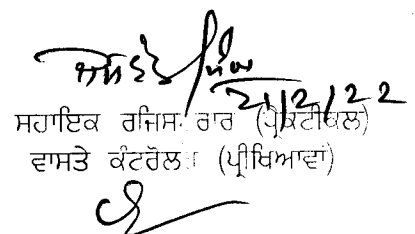 21/2/22
ਸਹਾਇਕ ਰਜਿਸ ਰਾਰ (ਪ੍ਰੈਕਟੀਕਲ)
ਵਾਸਤੇ ਕੰਟਰੋਲ (ਪ੍ਰੀਖਿਆਵਾਂ)